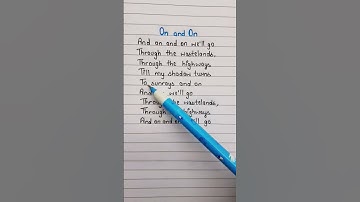 On and On
And on and on we'll go
Through the wastelands
Through the highways
Till my shadow turns
To sunrays and on
And we'll go
Through the wastelands,
Through highways
And on and on we'll go